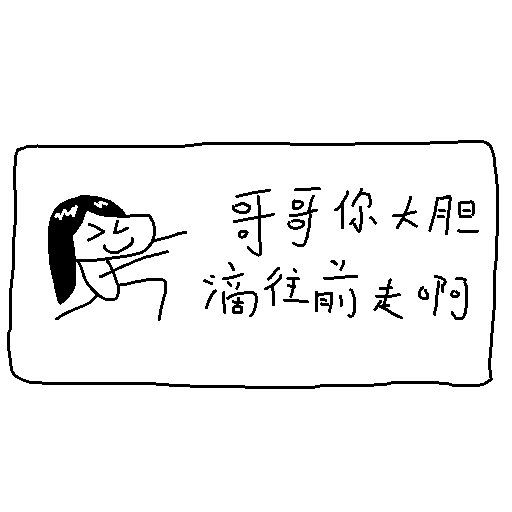 哥哥你大胆
滴往前走啊